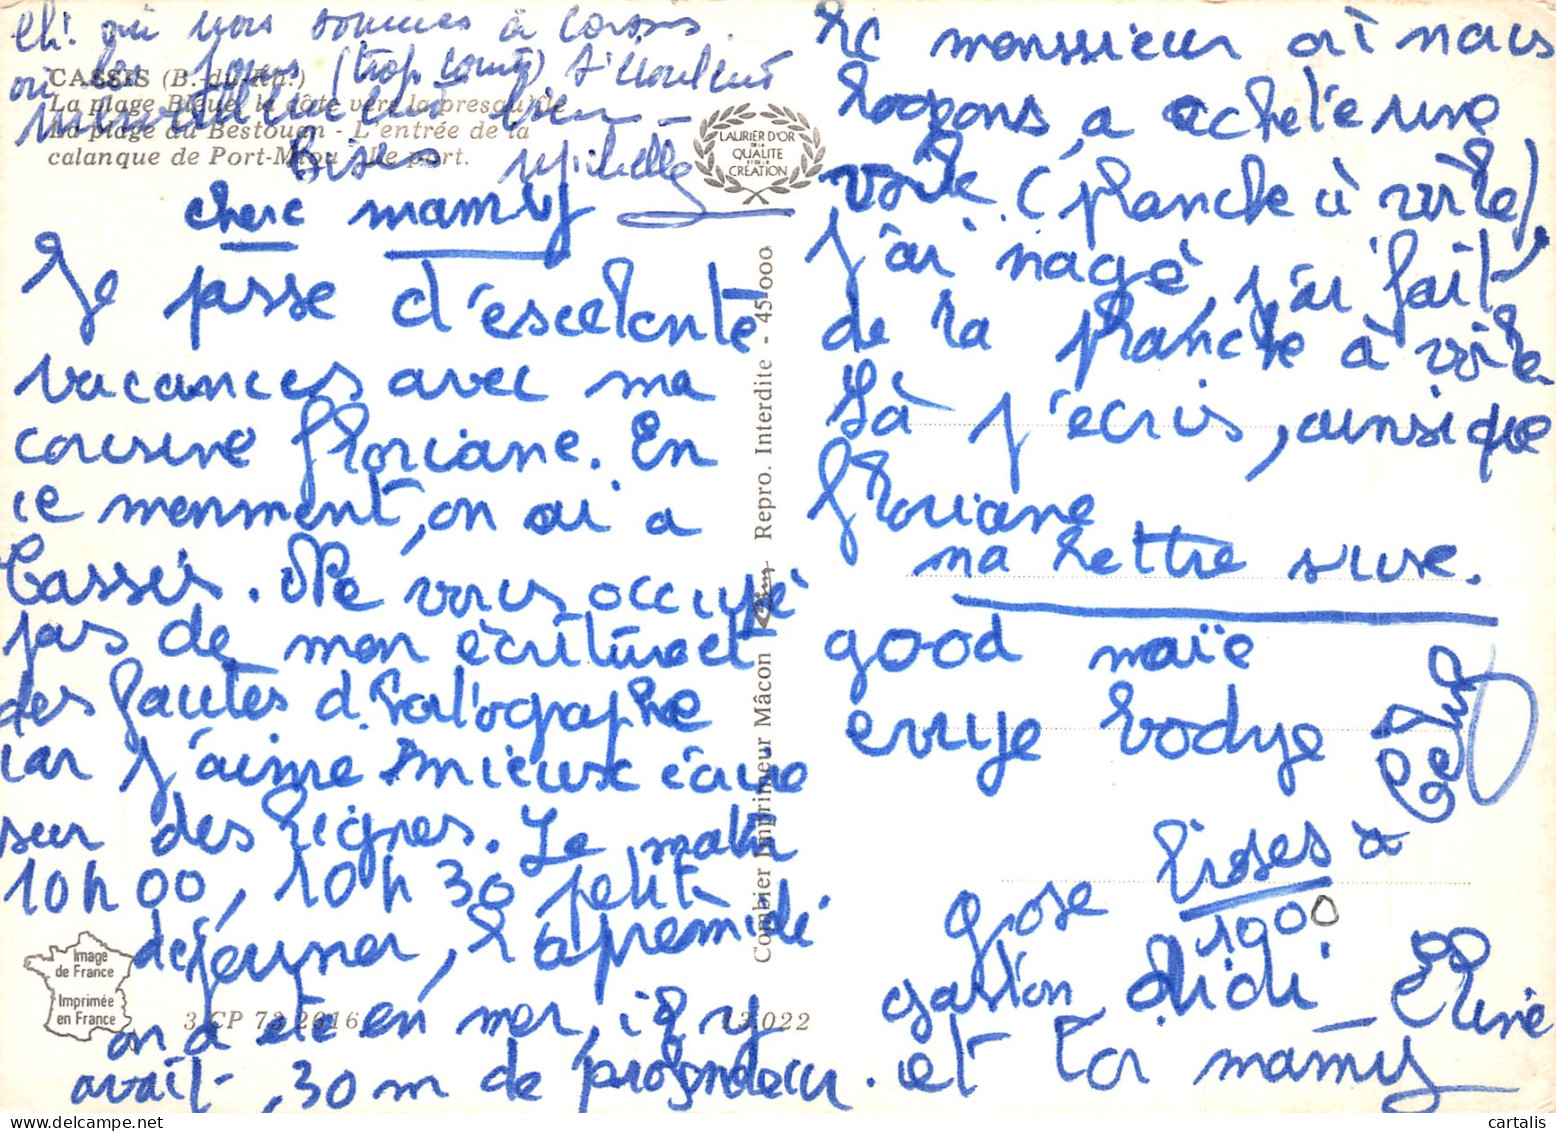 Eh! oui nous sommes à Cassis.
où les jours (trop courts) s'écoulent
merveilleusement bien
Bises Michelle
CASSIS (B.-du-Rh.)
La plage Bleue, la côte vers la presqu'île
La plage du Bestouan - L'entrée de la
calanque de Port-Miou - Le port.
LAURIER D'OR
DE LA
QUALITE
ET DE LA
CRÉATION
chere mamy
Je passe d'éscelente
vacances avec ma
cousine floriane. En
ce menment, on ai a
Cassis. Ne vous occupé
pas de mon écriture et
des fautes d'hortographe
car j'aime mieux écrire
sur des lignes. Le matin
10h00, 10h30 petit
déjeuner, l'apremidi
on a été en mer, il y
avait 30 m de profondeur.
Image
de France
Imprimée
en France
3 CP 73 2016
13.022
Combier Imprimeur Mâcon Cim Repro. Interdite - 45-000
le monssieur où nous
logeons, a acheté une
voile (planche à voile)
j'ai nagé, j'ai fait
de la planche à voile
Là j'écris, ainsi que
floriane
ma lettre suse.
good maïe
evrye bodye
grose bises à
1000
gaston, didi,
et toi mamy